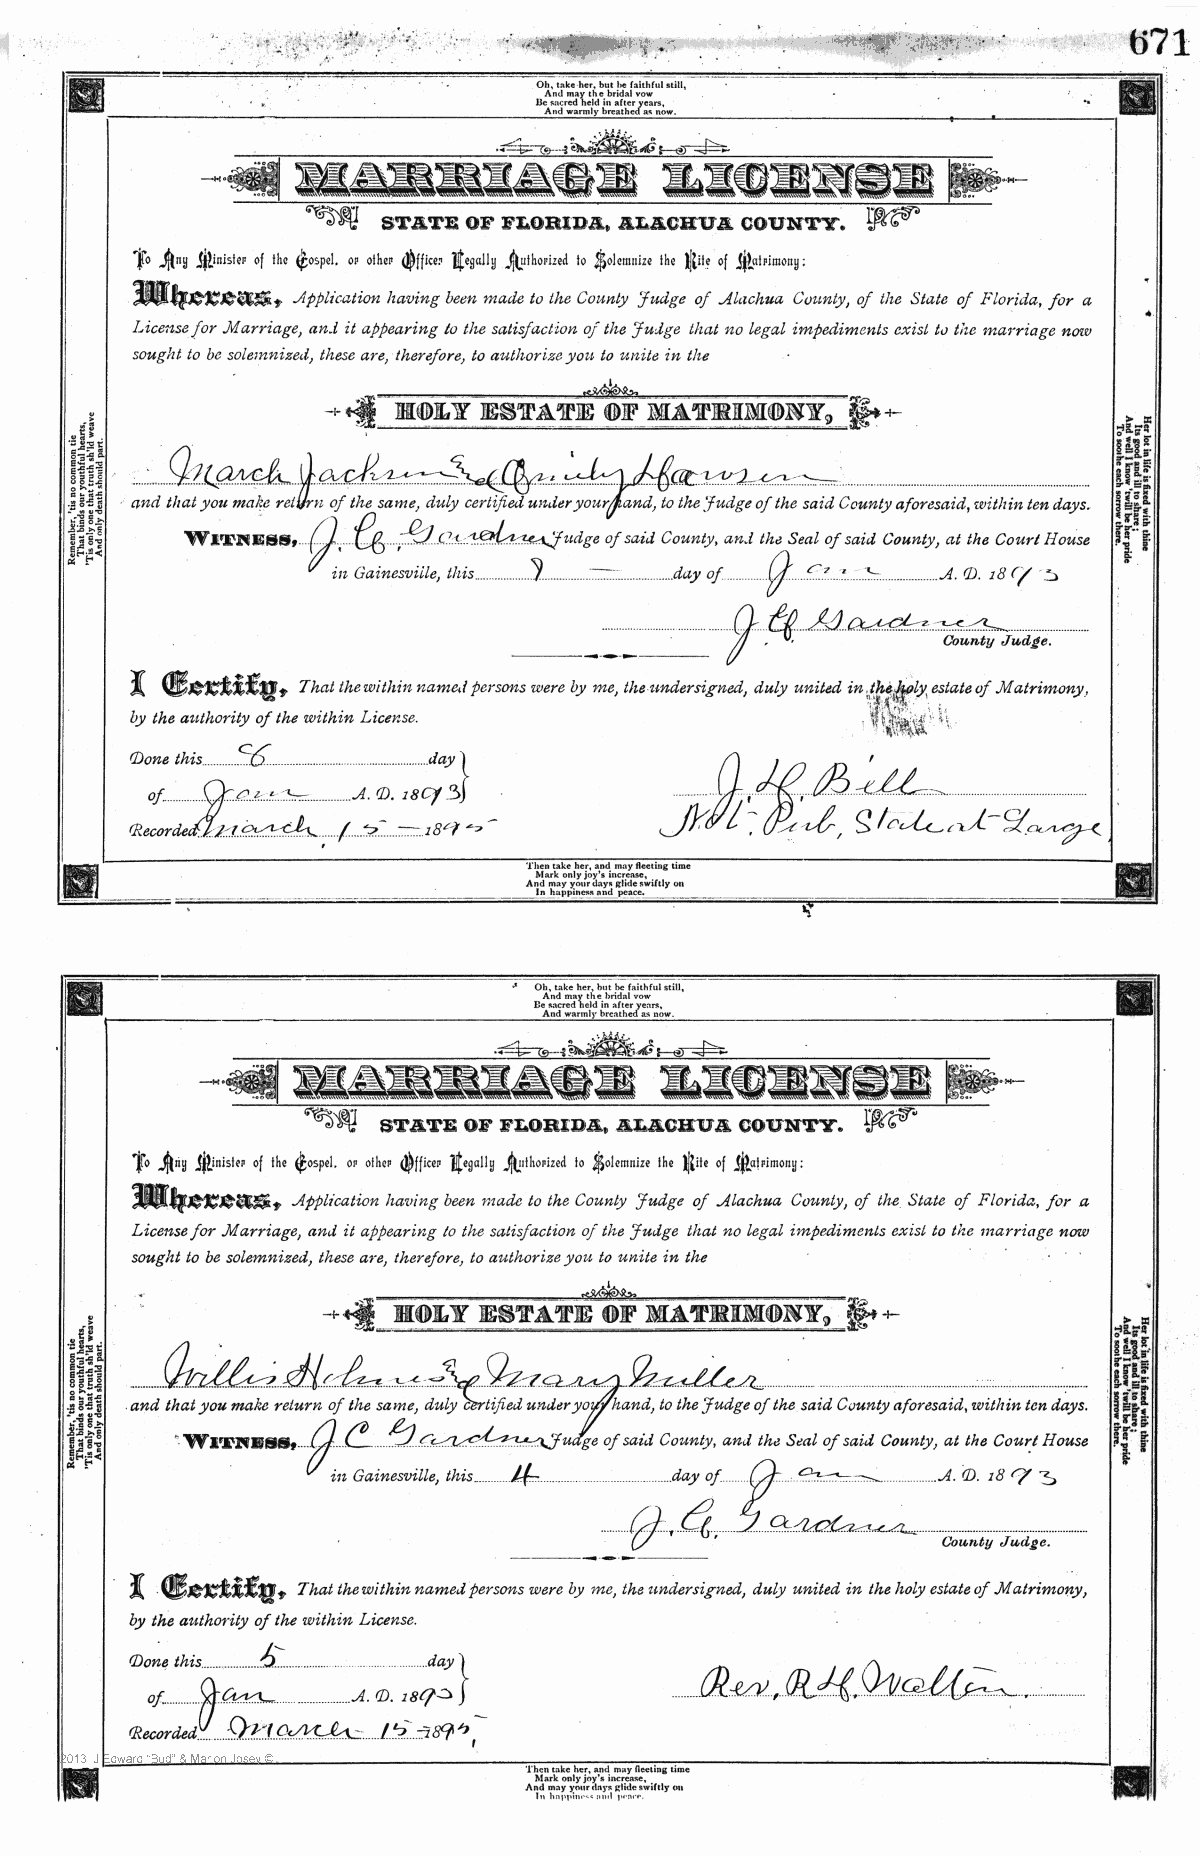 671
Oh, take her, but be faithful still,
And may the bridal vow
Be sacred held in after years,
And warmly breathed as now.
MARRIAGE LICENSE
STATE OF FLORIDA, ALACHUA COUNTY.
To Any Minister of the Gospel, or other Officer Legally Authorized to Solemnize the Rite of Matrimony:
Whereas, Application having been made to the County Judge of Alachua County, of the State of Florida, for a
License for Marriage, and it appearing to the satisfaction of the Judge that no legal impediments exist to the marriage now
sought to be solemnized, these are, therefore, to authorize you to unite in the
HOLY ESTATE OF MATRIMONY,
March Jackson and Emily Dawson
and that you make return of the same, duly certified under your hand, to the Judge of the said County aforesaid, within ten days.
WITNESS, J. C. Gardner Judge of said County, and the Seal of said County, at the Court House
in Gainesville, this 7 — day of Jan A. D. 1893
J. C. Gardner
County Judge.
I Certify, That the within named persons were by me, the undersigned, duly united in the holy estate of Matrimony,
by the authority of the within License.
Done this 8 day
of Jan A. D. 1893
J. H. Bell
Not. Pub, State at Large,
Recorded March 15 — 1895
Then take her, and may fleeting time
Mark only joy's increase,
And may your days glide swiftly on
In happiness and peace.
Remember, 'tis no common tie
That binds our youthful hearts,
'Tis only one that truth sh'ld weave
And only death should part.
Her lot in life is fixed with thine
Its good and ill to share;
And well I know 'twill be her pride
To soothe each sorrow there.
Oh, take her, but be faithful still,
And may the bridal vow
Be sacred held in after years,
And warmly breathed as now.
MARRIAGE LICENSE
STATE OF FLORIDA, ALACHUA COUNTY.
To Any Minister of the Gospel, or other Officer Legally Authorized to Solemnize the Rite of Matrimony:
Whereas, Application having been made to the County Judge of Alachua County, of the State of Florida, for a
License for Marriage, and it appearing to the satisfaction of the Judge that no legal impediments exist to the marriage now
sought to be solemnized, these are, therefore, to authorize you to unite in the
HOLY ESTATE OF MATRIMONY,
Willis Holmes and Mary Miller
and that you make return of the same, duly certified under your hand, to the Judge of the said County aforesaid, within ten days.
WITNESS, J C Gardner Judge of said County, and the Seal of said County, at the Court House
in Gainesville, this 4 day of Jan A. D. 1893
J. C. Gardner
County Judge.
I Certify, That the within named persons were by me, the undersigned, duly united in the holy estate of Matrimony,
by the authority of the within License.
Done this 5 day
of Jan A. D. 1893
Rev. R H. Walton.
Recorded March 15 - 1895,
2013 J Edward "Bud" & Marion Josey ©
Then take her, and may fleeting time
Mark only joy's increase,
And may your days glide swiftly on
In happiness and peace.
Remember, 'tis no common tie
That binds our youthful hearts,
'Tis only one that truth sh'ld weave
And only death should part.
Her lot in life is fixed with thine
Its good and ill to share;
And well I know 'twill be her pride
To soothe each sorrow there.